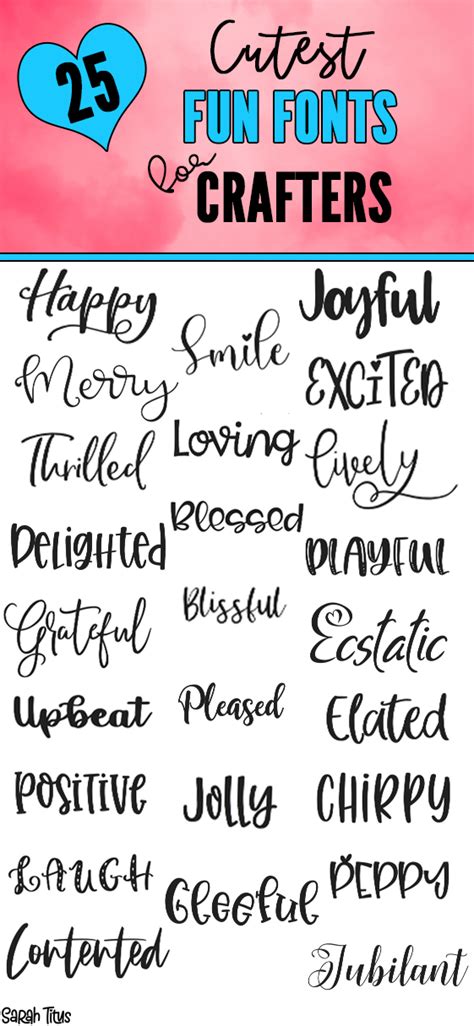 25
Cutest
FUN FONTS
for
CRAFTERS
Happy
Smile
Joyful
Merry
EXCiTED
Thrilled
Loving
lively
Delighted
Blessed
PLAYFUL
Grateful
Blissful
Ecstatic
Upbeat
Pleased
Elated
POSiTiVE
Jolly
CHiRPY
LAUGH
Gleeful
PEPPY
Contented
Jubilant
SARAH TiTUS